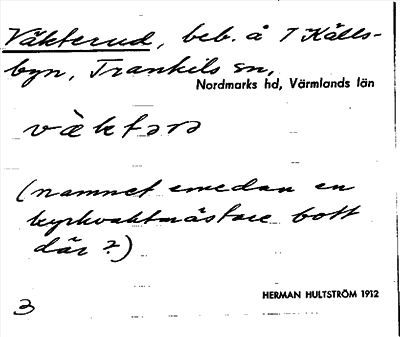 Väkterud, beb. å 7 Källs-
byn, Trankils sn,
Nordmarks hd, Värmlands län
väktərə
(namnet emedan en
kyrkvaktmästare bott
där?)
HERMAN HULTSTRÖM 1912
3